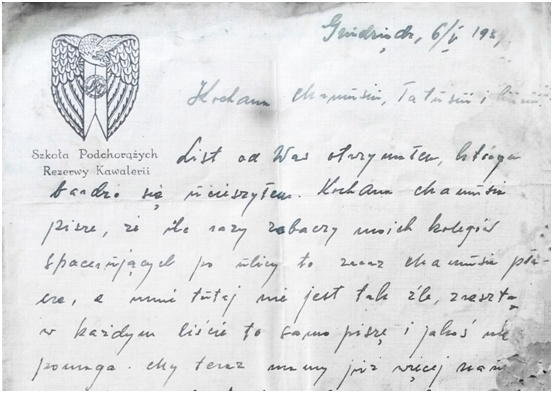 Grudziądz, 6/V 193
Kochana Mamusiu, Tatusiu i
Szkoła Podchorążych
Rezerwy Kawalerii
List od Was otrzymałem, którego
bardzo się ucieszyłem. Kochana Mamusia
pisze, że ile razy zobaczy moich kolegów
spacerujących po ulicy to zaraz Mamusia pła-
cze, a mnie tutaj nie jest tak źle, zresztą
w każdym liście to samo piszę i jakoś nie
pomaga. My teraz mamy już więcej